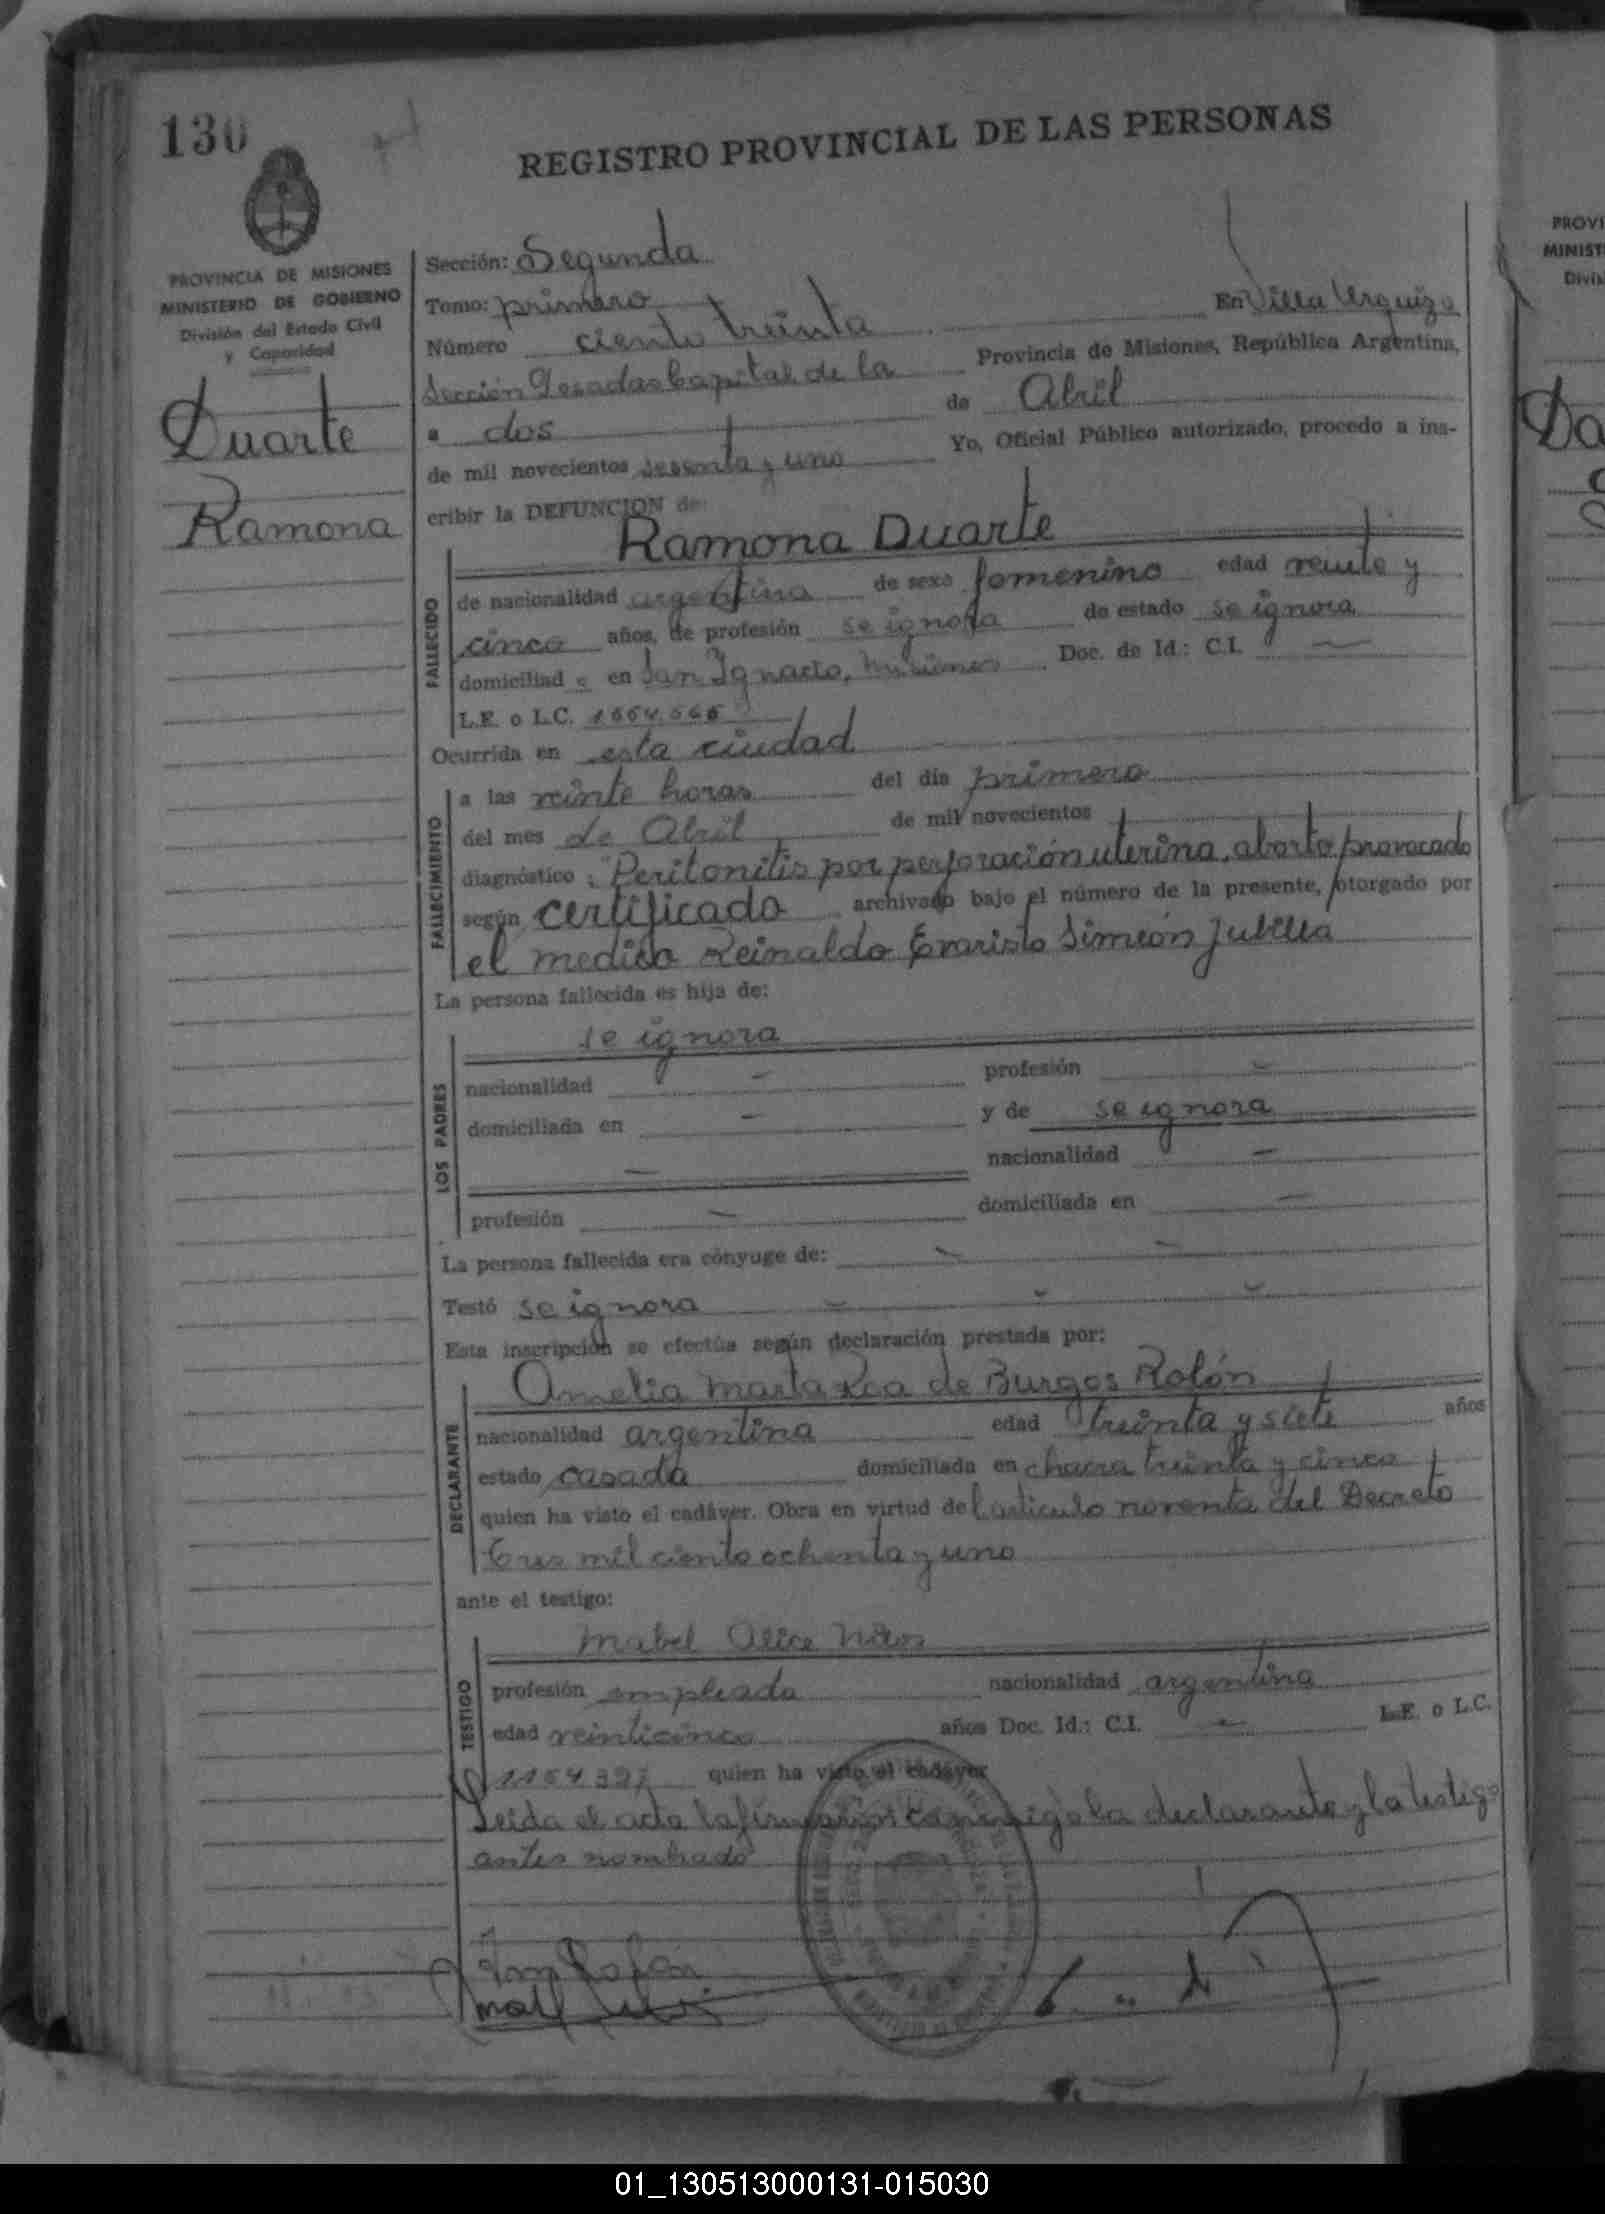 130
REGISTRO PROVINCIAL DE LAS PERSONAS
PROVINCIA DE MISIONES
MINISTERIO DE GOBIERNO
División del Estado Civil
y Capacidad
Duarte
Ramona
Sección: Segunda
Tomo: primero En Villa Urquiza
Número ciento treinta
Sección Posadas Capital de la Provincia de Misiones, República Argentina,
a dos de Abril
de mil novecientos sesenta y uno Yo, Oficial Público autorizado, procedo a ins-
cribir la DEFUNCION de:
Ramona Duarte
FALLECIDO
de nacionalidad argentina de sexo femenino edad veinte y
cinco años, de profesión se ignora de estado se ignora
domiciliad a en San Ignacio, Misiones Doc. de Id.: C.I. —
L.E. o L.C.
Ocurrida en esta ciudad
FALLECIMIENTO
a las veinte horas del día primero
del mes de Abril de mil novecientos
diagnóstico: "Peritonitis por perforación uterina, aborto provocado
según certificado archivado bajo el número de la presente, otorgado por
el medico Reinaldo Evaristo Simeón Jubilla
La persona fallecida es hija de:
LOS PADRES
se ignora
nacionalidad — profesión —
domiciliada en — y de se ignora
— nacionalidad —
profesión — domiciliada en —
La persona fallecida era cónyuge de: — —
Testó se ignora — — —
Esta inscripción se efectúa según declaración prestada por:
DECLARANTE
Amelia Marta Roa de Burgos Rolón
nacionalidad argentina edad treinta y siete años
estado casada domiciliada en chacra treinta y cinco
quien ha visto el cadáver. Obra en virtud del articulo noventa del Decreto
tres mil ciento ochenta y uno
ante el testigo:
TESTIGO
Mabel Alice
profesión empleada nacionalidad argentina
edad veinticinco años Doc. Id.: C.I. — L.E. o L.C.
quien ha visto el cadáver
Leida el acta la firman conmigo la declarante y la testigo
antes nombrado
PROVI
MINIST
Divis
Da
01_130513000131-015030